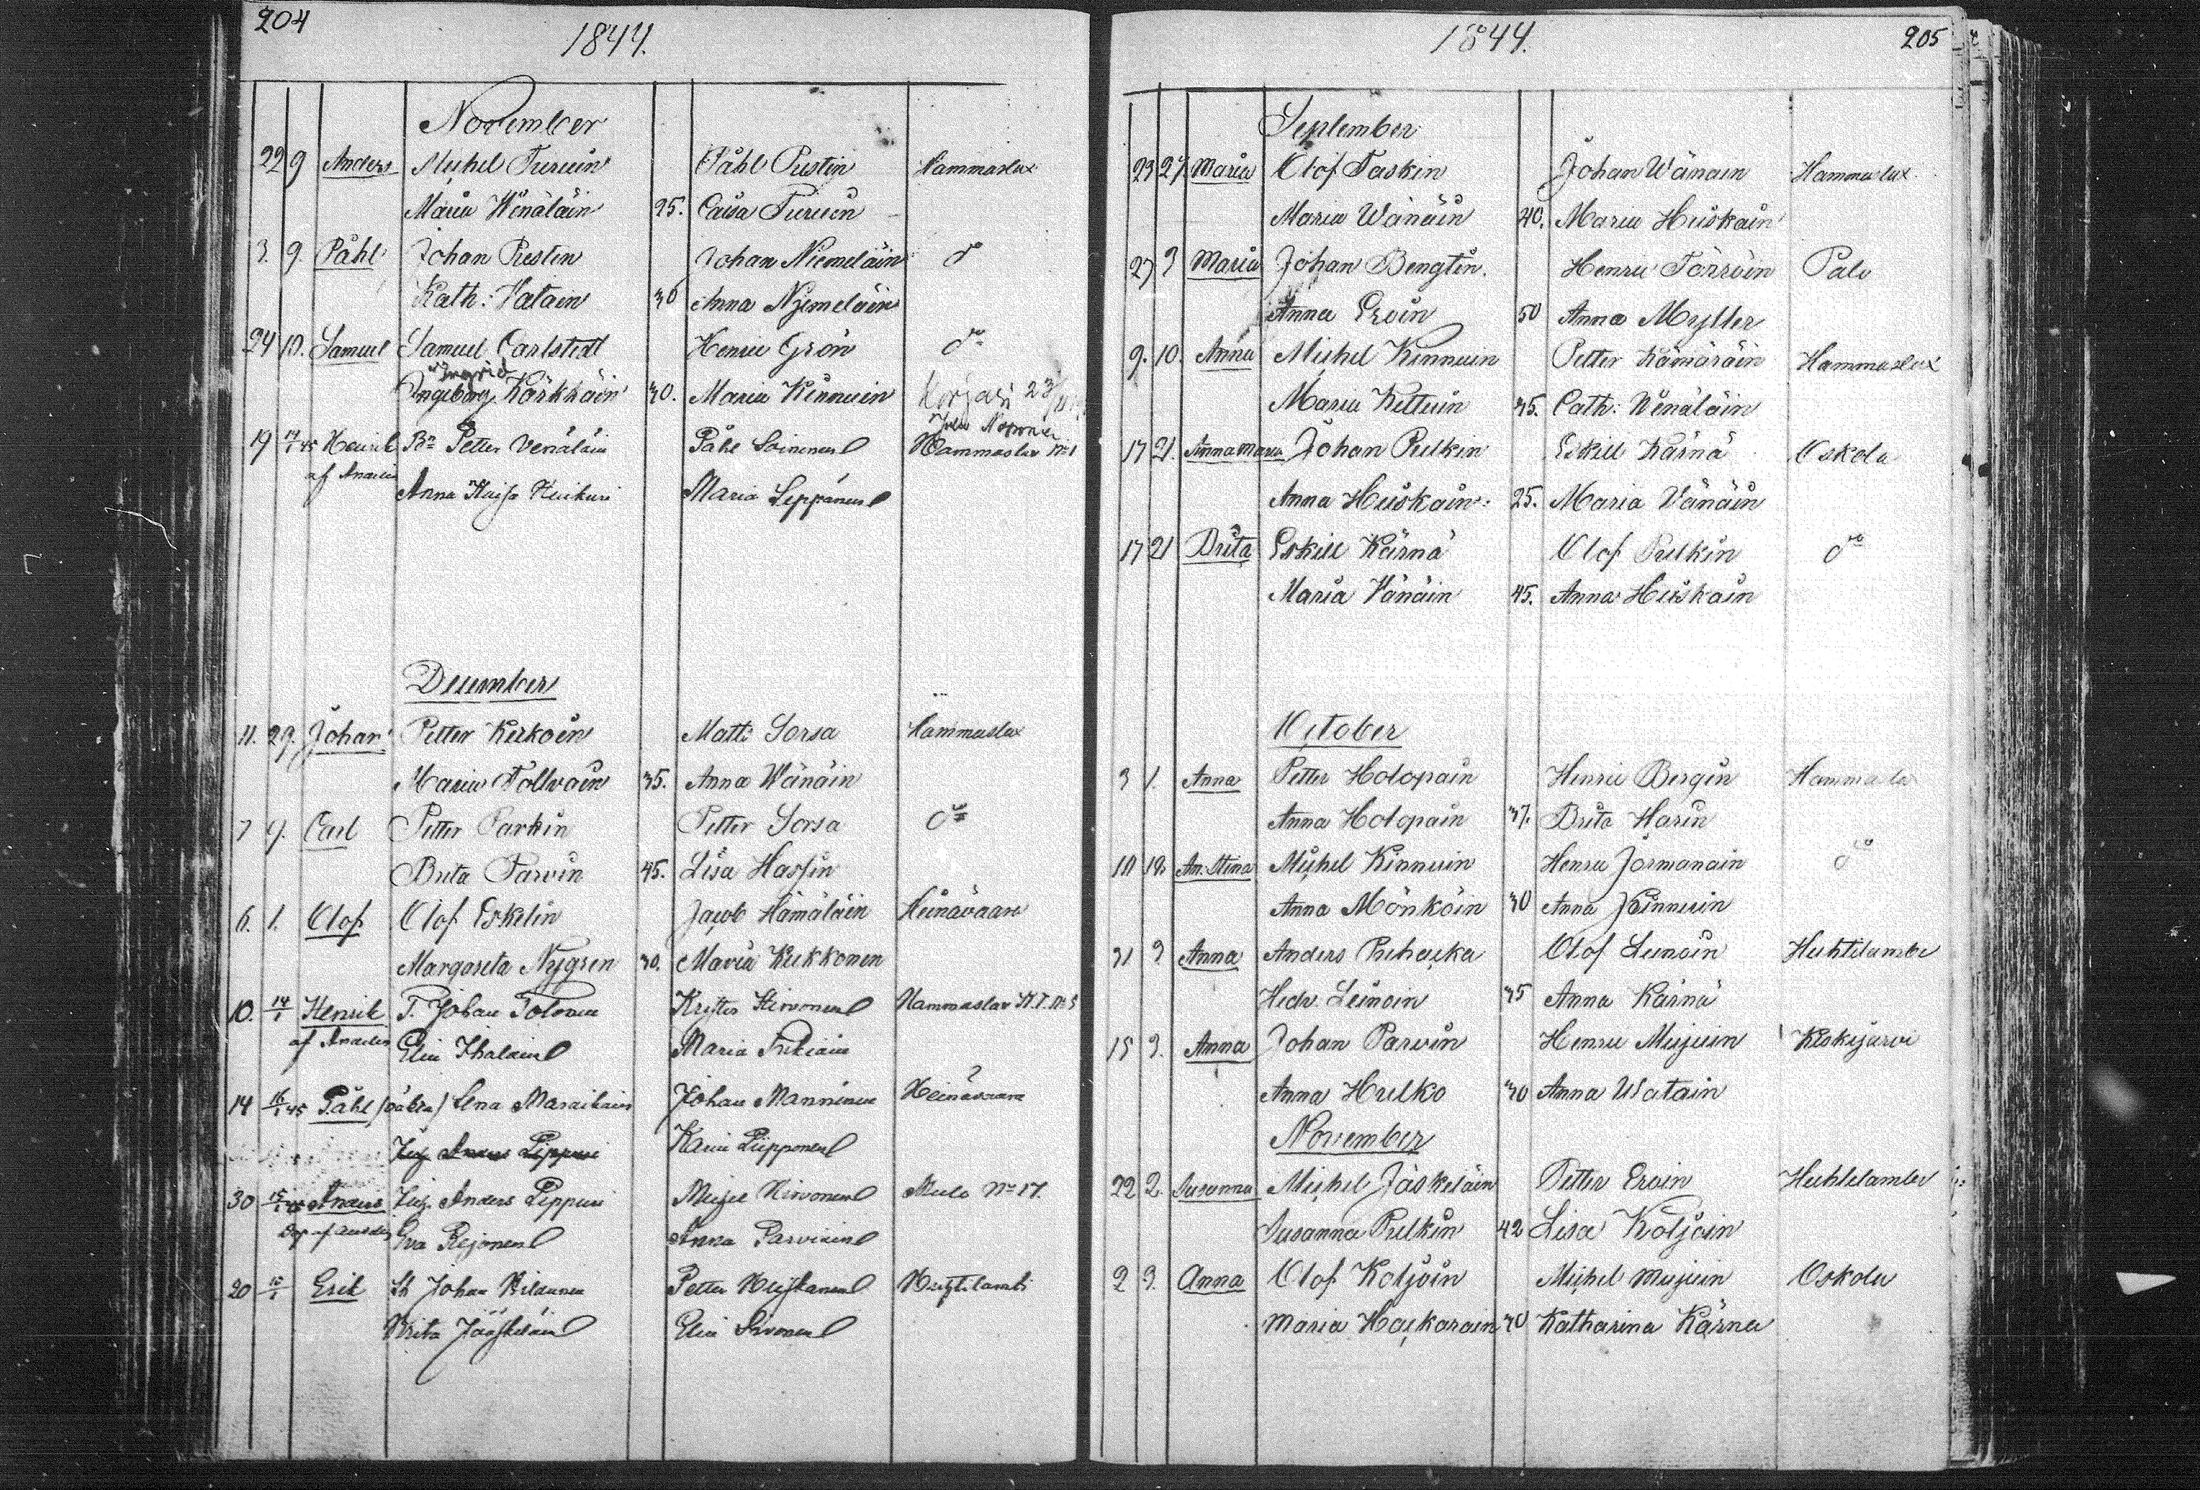 204
1844.
November
22 9 Anders Michel Turuin Påhl Pustin Hammaslax
Maria Wenäläin 25. Caisa Turuin
3. 9. Påhl Johan Pustin Johan Niemeläin do
Kath: Vatain 30 Anna Njemeläin
24 10. Samuel Samuel Carlstedt Henric Grön do
Ingrid
Ingeborg Kärkkäin 30. Maria Kinnuin Korjasi 23/11
Juho Noponen
19 Henric Bn Petter Venäläin Påhl Soinenen Hammaslax No 1
af Anderin Anna Kaisa Kuikuri Maria Leppänen
December
11. 29. Johan Petter Kerkoin Matts Sorsa Hammaslax
Maria Tollvain 35. Anna Wänäin
7 9. Carl Petter Parkin Petter Sorsa do
Brita Parvin 45. Lisa Hassin
6. 1. Olof Olof Eskelin Jacob Hämäläin Heinävaara
Margareta Nygren 30. Maria Kukkonen
10. 14/1 Henrik T. Johan Tolonen Krister Hirvonen Hammaslax
Elin Ihalain Maria
14 16/1 45 Påhl Lena Johan Manninen Heinävaara
Anders Lippoin Karin Piipponen
30 15/1 45 Anders Anders Mulo No 17.
Eva Rejonen Anna Parviain
20 15/1 Erik Johan Petter Huiskanen Huhtilambi
Brita Jääskeläin Elin Sivonen
1844.
205
September
23 27 Maria Olof Taskin Johan Wänäin Hammaslax
Maria Wänäin 40. Maria Huiskain
27 3 Maria Johan Bengtin. Henric Törröin Palo
Anna Eroin 50 Anna Myller
9. 10. Anna Michel Kinnuin Petter Kämäräin Hammaslax
Maria Kettuin 35. Cath: Wenäläin
17 21. Anna Maria Johan Pulkin Eskill Kärnä Oskola
Anna Huiskain 25. Maria Vänäin
17 21 Brita Eskill Kärnä Olof Pulkin do
Maria Vänäin 45. Anna Huiskain
October
3 1. Anna Petter Holopain Henric Bergin Hammaslax
Anna Holopain 37. Brita Harin
10 12. An. Stina Michel Kinnuin Henric Jormanain do
Anna Mönköin 30 Anna Kinnuin
31 3 Anna Anders Puhacka Olof Leinoin Huhtilambi
Hedv. Leinoin 35 Anna Kärnä
15 3. Anna Johan Parvin Henric Mujuin Kiskijärvi
Anna Hulko 30 Anna Watain
November
22 2. Susanna Michel Jäskeläin Petter Eroin Huhtilambi
Susanna Pulkin 42 Lisa Koljoin
2 3. Anna Olof Koljoin Michel Mujuin Oskola
Maria Hackarain 30 Katharina Kärnä